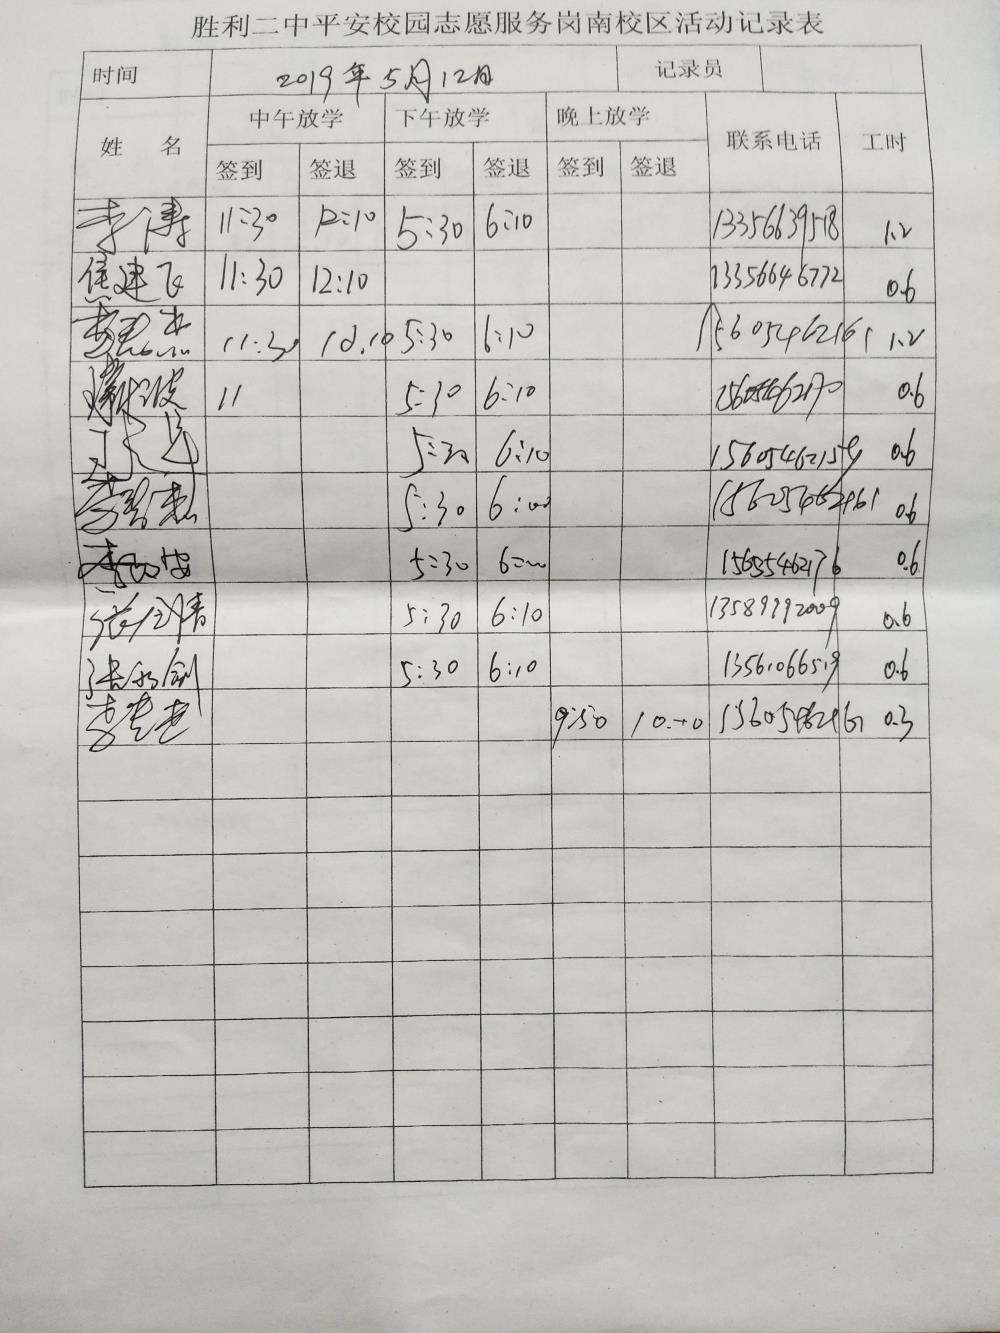 胜利二中平安校园志愿服务岗南校区活动记录表
时间 2019年5月12日 记录员
姓 名 中午放学 下午放学 晚上放学 联系电话 工时
签到 签退 签到 签退 签到 签退
李涛 11:30 12:10 5:30 6:10 13356639518 1.2
焦建飞 11:30 12:10 13356646772 0.6
11:30 12:10 5:30 6:10 15605462161 1.2
11 5:30 6:10 15605462170 0.6
5:30 6:10 15605462159 0.6
5:30 6:00 0.6
5:30 6:00 0.6
5:30 6:10 13589992009 0.6
5:30 6:10 13561066519 0.6
9:50 10:10 0.3